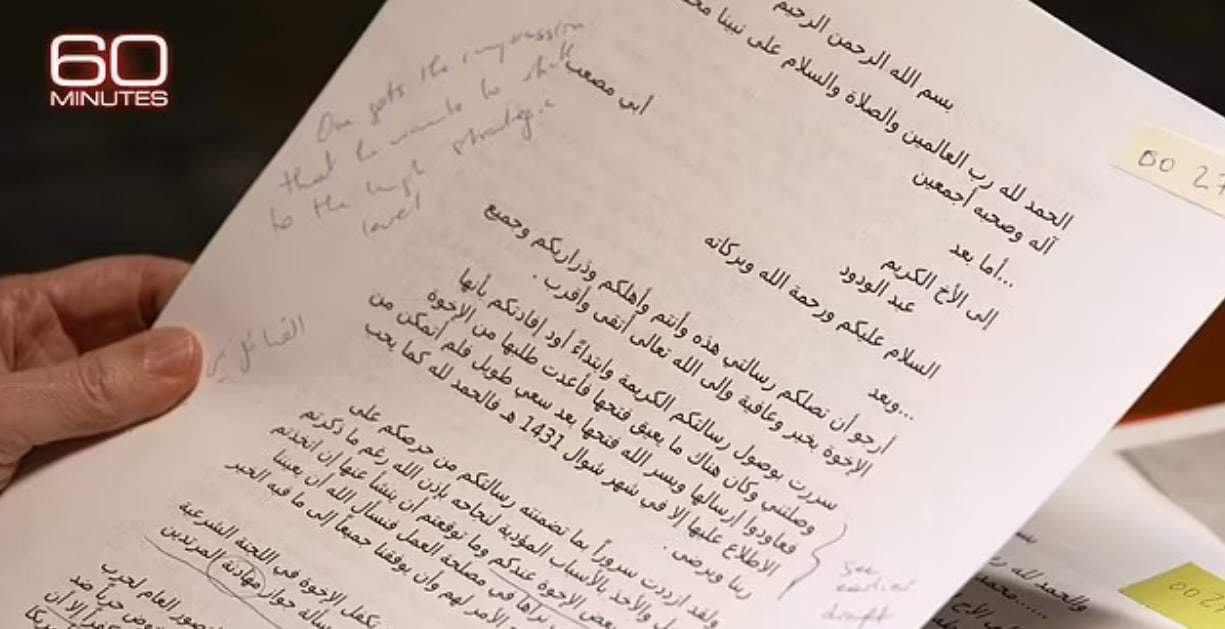 60
MINUTES
بسم الله الرحمن الرحيم
الحمد لله رب العالمين والصلاة والسلام على نبينا
آله وصحبه أجمعين
أما بعد...
إلى الأخ الكريم
أبي مصعب
عبد الودود
السلام عليكم ورحمة الله وبركاته
وبعد...
أرجو أن تصلكم رسالتي هذه وأنتم وأهلكم وذراريكم وجميع
الإخوة بخير وعافية وإلى الله تعالى أتقى وأقرب .
سررت بوصول رسالتكم الكريمة وابتداءً أود إفادتكم بأنها
وصلتني وكان هناك ما يعيق فتحها فأعدت طلبها من الإخوة
فعاودوا إرسالها ويسر الله فتحها بعد سعي طويل فلم أتمكن من
الاطلاع عليها إلا في شهر شوال 1431 هـ فالحمد لله كما يحب
ربنا ويرضى .
ولقد ازددت سروراً بما تضمنته رسالتكم من حرصكم على
والأخذ بالأسباب المؤدية لنجاحه بإذن الله رغم ما ذكرتم
بعض الإخوة عندكم وما توقعتم أن ينشأ عنها إن اتخذتم
في مصلحة العمل فنسأل الله أن يعيننا
الأمر لهم وأن يوفقنا جميعاً إلى ما فيه الخير
يكفل الإخوة في اللجنة الشرعية
جواز مهادنة المرتدين
العام لحرب
حرباً ضد
إلا أن
One gets the impression
that he wants to stick
to the high strategic
level
see
earlier
draft
00 27
والحمد لله